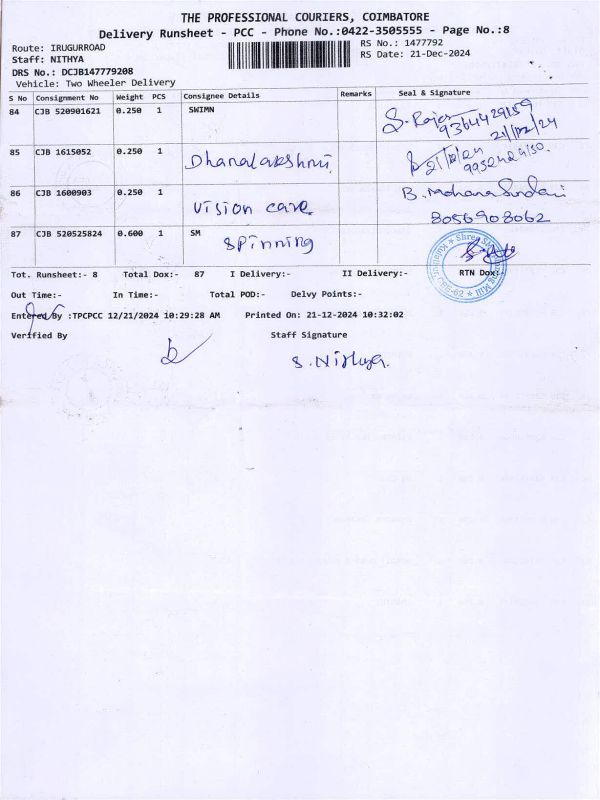 THE PROFESSIONAL COURIERS, COIMBATORE
Delivery Runsheet - PCC - Phone No.:0422-3505555 - Page No.:8
Route: IRUGURROAD
RS No.: 1477792
Staff: NITHYA
RS Date: 21-Dec-2024
DRS No.: DCJB147779208
Vehicle: Two Wheeler Delivery
S No Consignment No Weight PCS Consignee Details Remarks Seal & Signature
84 CJB 520901621 0.250 1 SWIMN S. Rajan
9364429159
21/12/24
85 CJB 1615052 0.250 1 Dhanalakshmi 21/12/24
9952424150.
86 CJB 1600903 0.250 1 Vision care B. Mohana Sundari
8056908062
87 CJB 520525824 0.600 1 SM
Spinning
Tot. Runsheet:- 8 Total Dox:- 87 I Delivery:- II Delivery:- RTN Dox:-
Out Time:- In Time:- Total POD:- Delvy Points:-
Entered By :TPCPCC 12/21/2024 10:29:28 AM Printed On: 21-12-2024 10:32:02
Verified By Staff Signature
S. Nithya.